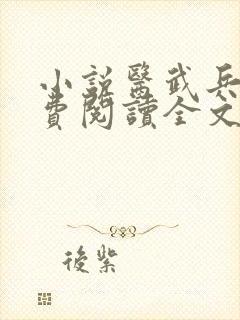 小説醫武兵
費閱讀全文
後紫